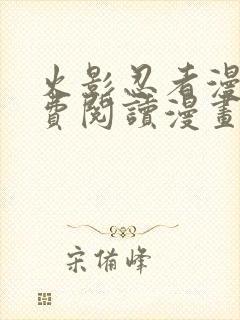 火影忍者漫
費閱讀漫畫
宋備峰